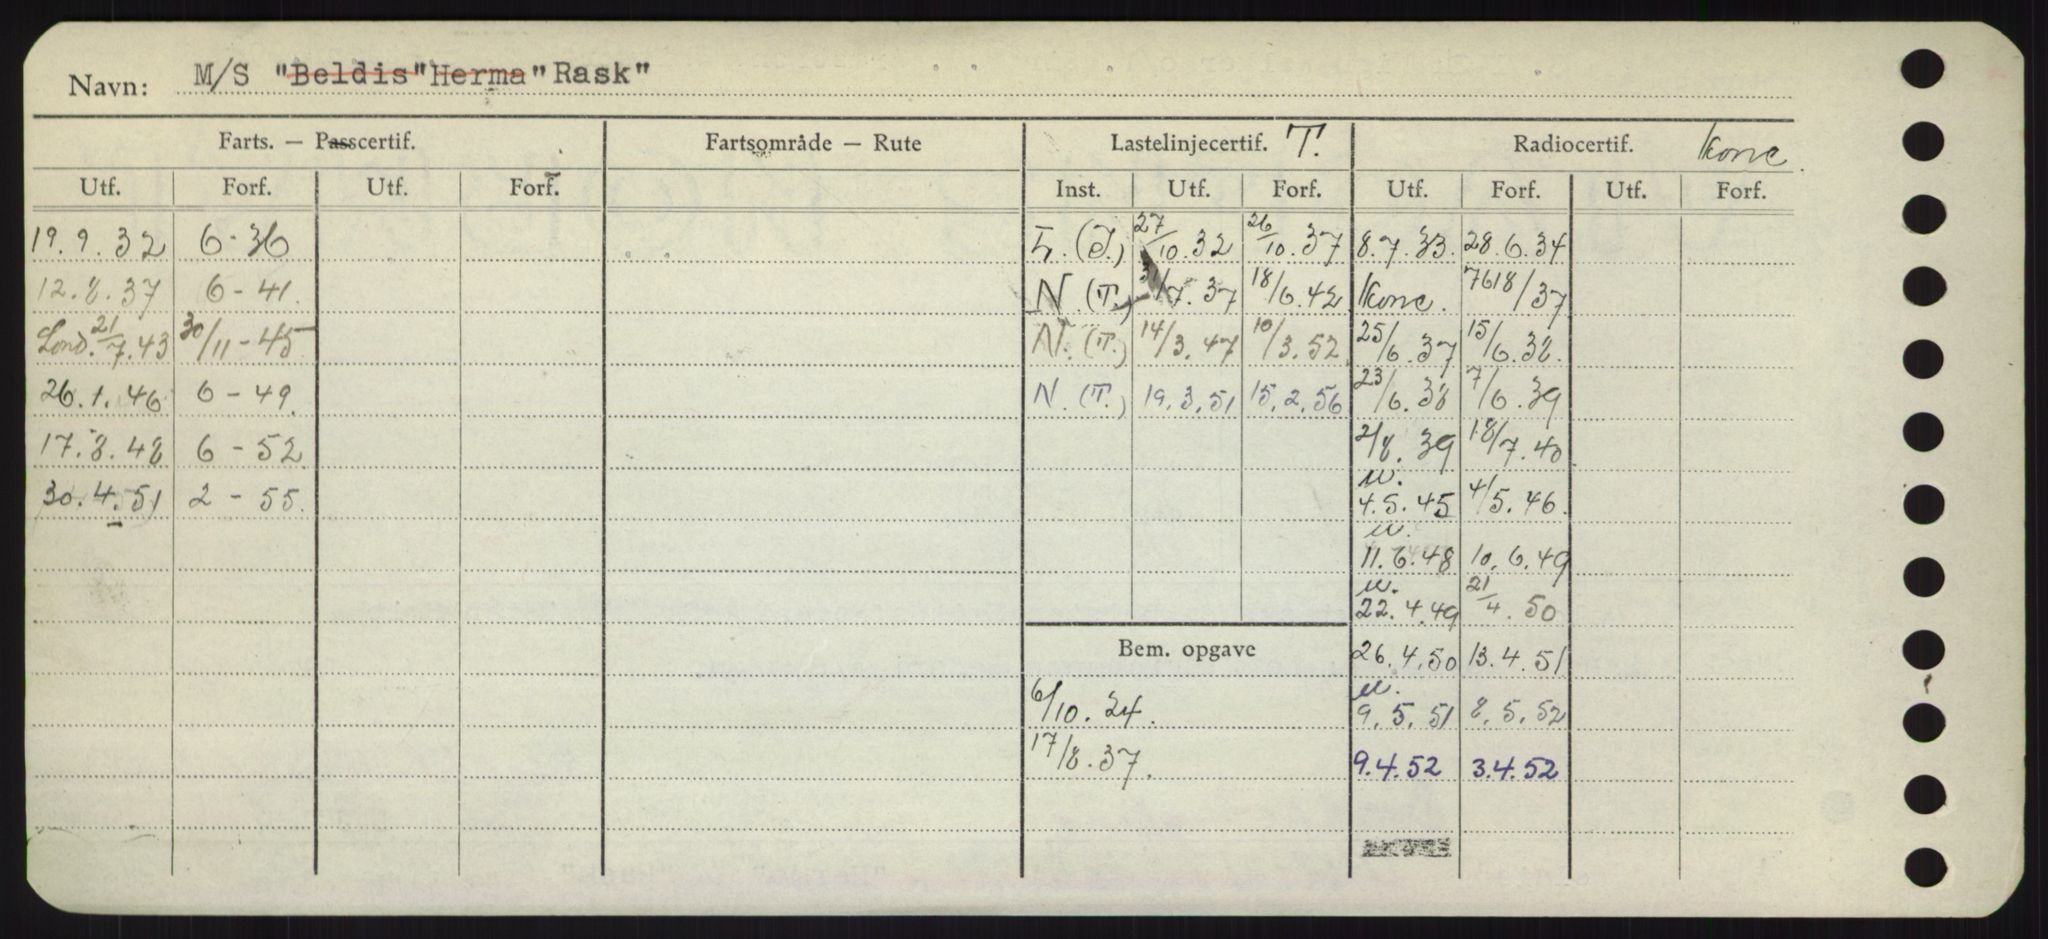 Navn: M/S "Beldis" Herma "Rask"
Farts. — Passcertif. Fartsområde — Rute Lastelinjecertif. T. Radiocertif. Konc.
Utf. Forf. Utf. Forf. Inst. Utf. Forf. Utf. Forf. Utf. Forf.
19.9.32 6-36 L. (T.) 27/10.32 26/10.37 8.7.33. 28.6.34
12.8.37 6-41. N. (T.) 31/7.37 18/6.42 Konc. 7618/37
Lond. 21/7.43 30/11-45 N. (T.) 14/3.47 10/3.52 25/6.37 15/6.38.
26.1.46 6-49. N. (T.) 19.3.51 15.2.56 23/6.38 7/6.39
17.8.48 6-52 2/8.39 18/7.40
30.4.51 2-55. u. 4.5.45 4/5.46.
u. 11.6.48 10.6.49
u. 22.4.49 21/4.50
Bem. opgave 26.4.50 13.4.51
6/10.24. u. 9.5.51 8.5.52
17/8.37. 9.4.52 3.4.52